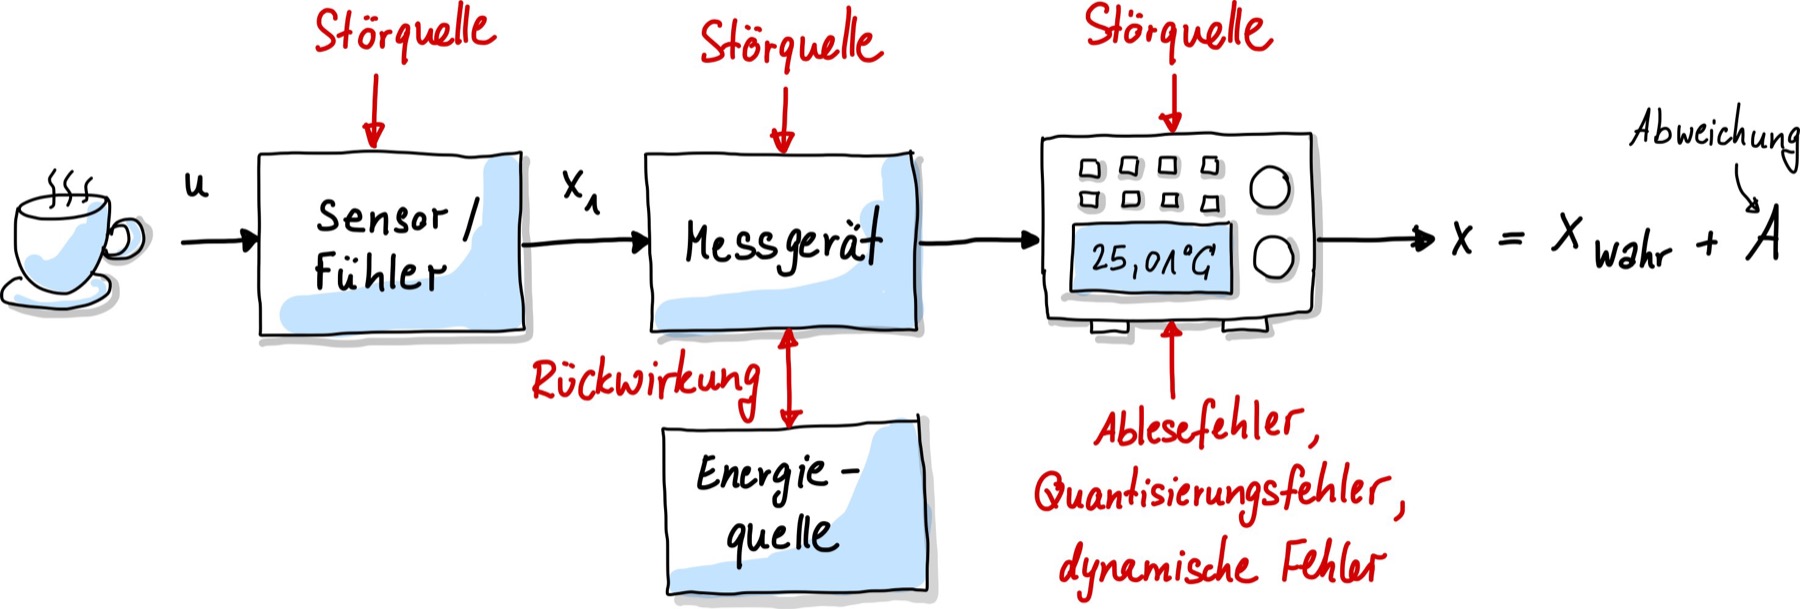 Störquelle
Störquelle
Störquelle
Abweichung
u
Sensor /
Fühler
x₁
Messgerät
25,01°C
x = x wahr + A
Rückwirkung
Energie-
quelle
Ablesefehler,
Quantisierungsfehler,
dynamische Fehler